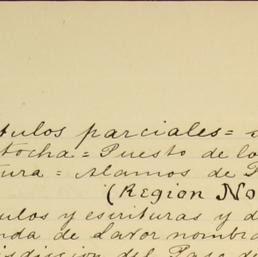 tulos parciales =
tocha = Puesto de lo
tura = Alamos de P
(Region No
ulos y escrituras y d
nda de Lavor nombra
isdiccion del Paso de